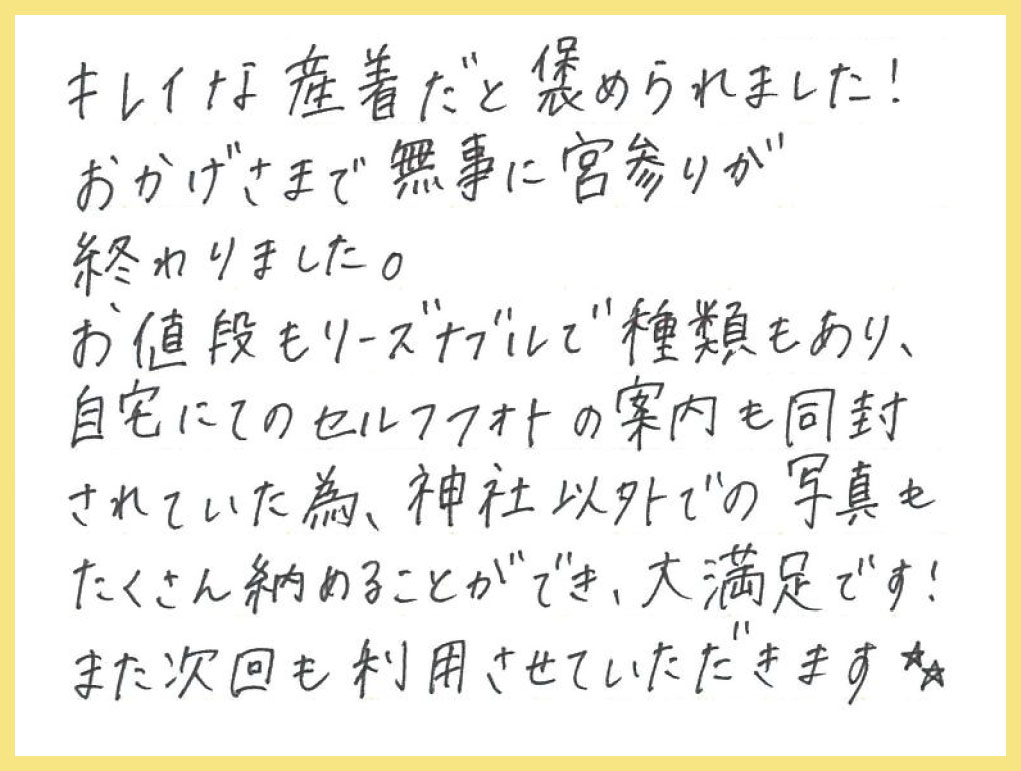 キレイな産着だと褒められました!
おかげさまで無事に宮参りが
終わりました。
お値段もリーズナブルで種類もあり、
自宅にてのセルフフォトの案内も同封
されていた為、神社以外での写真も
たくさん納めることができ、大満足です!
また次回も利用させていただきます☆☆